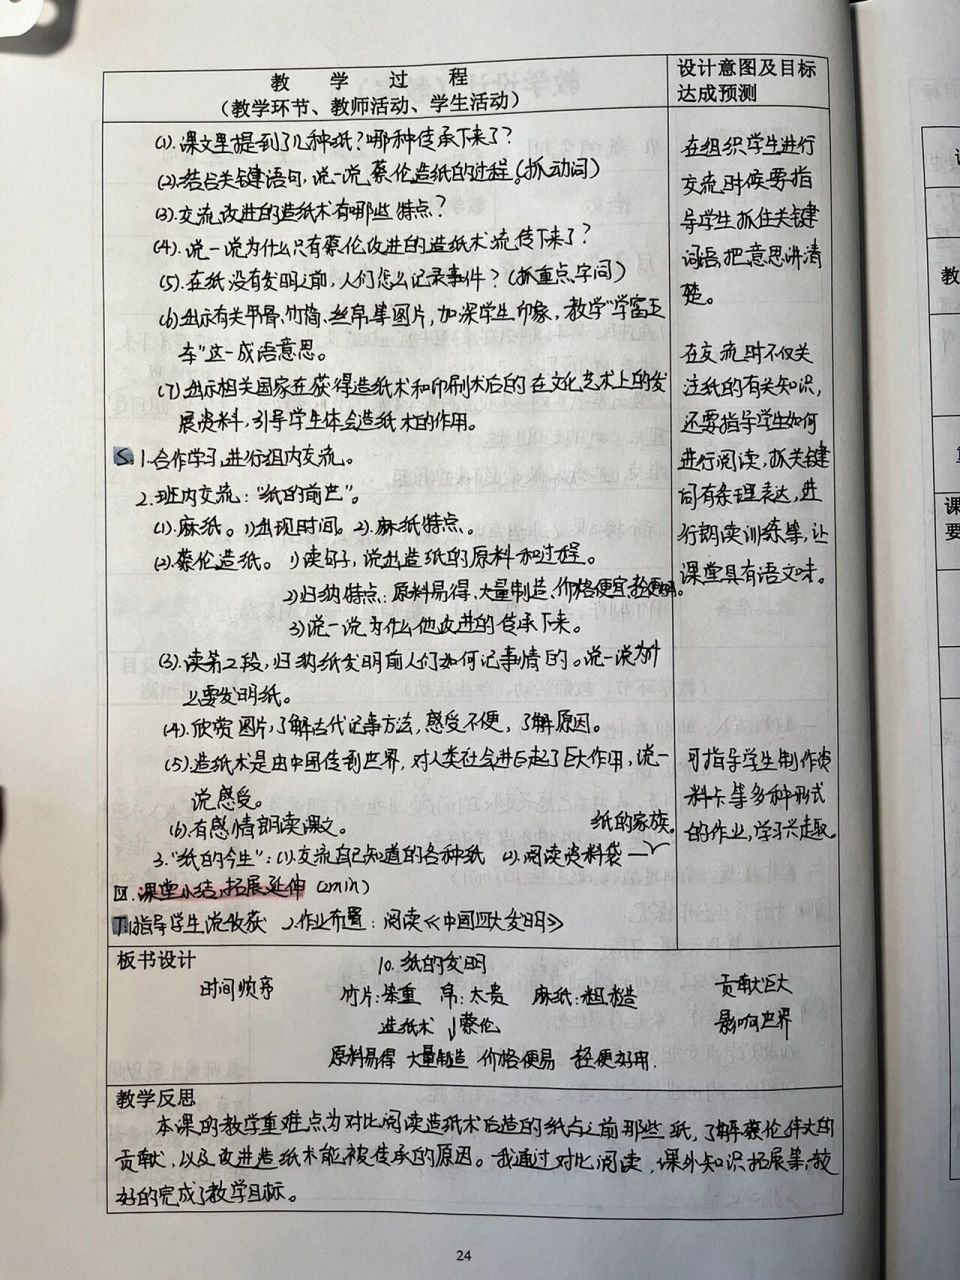 教 学 过 程
（教学环节、教师活动、学生活动）
设计意图及目标
达成预测
(1).课文里提到了几种纸？哪种传承下来了？
(2).结合关键语句，说一说，蔡伦造纸的过程。(抓动词)
(3).交流改进的造纸术有哪些特点？
(4).说一说为什么只有蔡伦改进的造纸术流传下来了？
(5).在纸没有发明之前，人们怎么记录事件？(抓重点字词)
(6).出示有关甲骨、竹简、丝帛等图片，加深学生印象，教学“学富五
车”这一成语意思。
(7).出示相关国家在获得造纸术和印刷术后的在文化艺术上的发
展资料，引导学生体会造纸术的作用。
S.1.合作学习，进行组内交流。
2.班内交流：“纸的前世”。
(1).麻纸。1)出现时间。2).麻纸特点。
(2).蔡伦造纸。1)读句子，说出造纸的原料和过程。
2)归纳特点：原料易得、大量制造、价格便宜、轻便好用。
3)说一说为什么他改进的传承下来。
(3).读第2段，归纳纸发明前人们如何记事情的。说一说为什
么要发明纸。
(4).欣赏图片，了解古代记事方法，感受不便，了解原因。
(5).造纸术是由中国传到世界，对人类社会进步起了巨大作用，说一
说感受。
(6).有感情朗读课文。
纸的家族。
3.“纸的今生”：(1).交流自己知道的各种纸 (2).阅读资料袋—
Ⅲ.课堂小结，拓展延伸(2min)
T.1.指导学生说收获 2.作业布置：阅读《中国四大发明》
在组织学生进行
交流时候要指
导学生抓住关键
词语，把意思讲清
楚。
在交流时不仅关
注纸的有关知识，
还要指导学生如何
进行阅读，抓关键
词有条理表达，进
行朗读训练等，让
课堂具有语文味。
可指导学生制作资
料卡等多种形式
的作业，学习兴趣。
板书设计
10.纸的发明
时间顺序
竹片：笨重 帛：太贵 麻纸：粗糙
贡献巨大
造纸术 ↓蔡伦
影响世界
原料易得 大量制造 价格便易 轻便好用.
教学反思
本课的教学重难点为对比阅读造纸术后造的纸与之前那些纸，了解蔡伦伟大的
贡献，以及改进造纸术能被传承的原因。我通过对比阅读，课外知识拓展等，较
好的完成了教学目标。
24